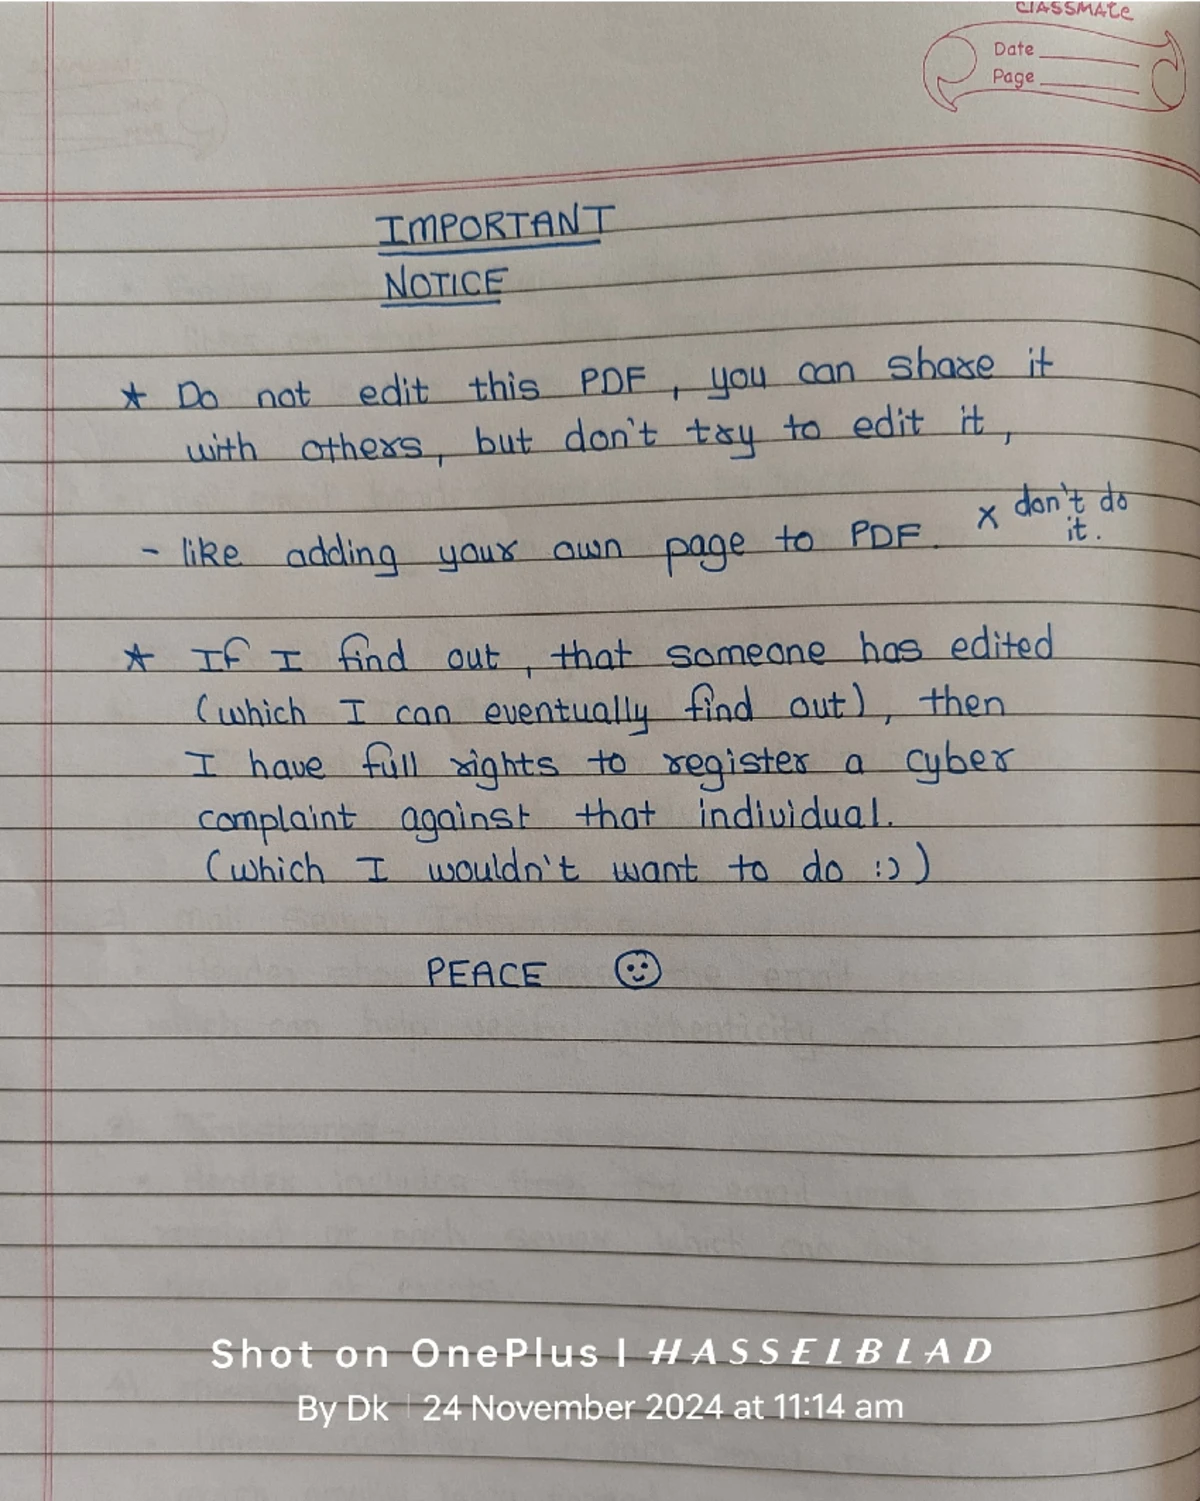 classmate
Date
Page
IMPORTANT
NOTICE
★ Do not edit this PDF, you can share it
with others, but don't try to edit it,
- like adding your own page to PDF. x don't do
it.
★ If I find out, that someone has edited
(which I can eventually find out), then
I have full rights to register a cyber
complaint against that individual.
(which I wouldn't want to do :))
PEACE ☺
Shot on OnePlus | HASSELBLAD
By Dk | 24 November 2024 at 11:14 am